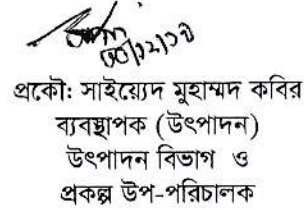 প্রকৌ: সাইয়্যেদ মুহাম্মদ কবির
ব্যবস্থাপক (উৎপাদন)
উৎপাদন বিভাগ ও
প্রকল্প উপ-পরিচালক